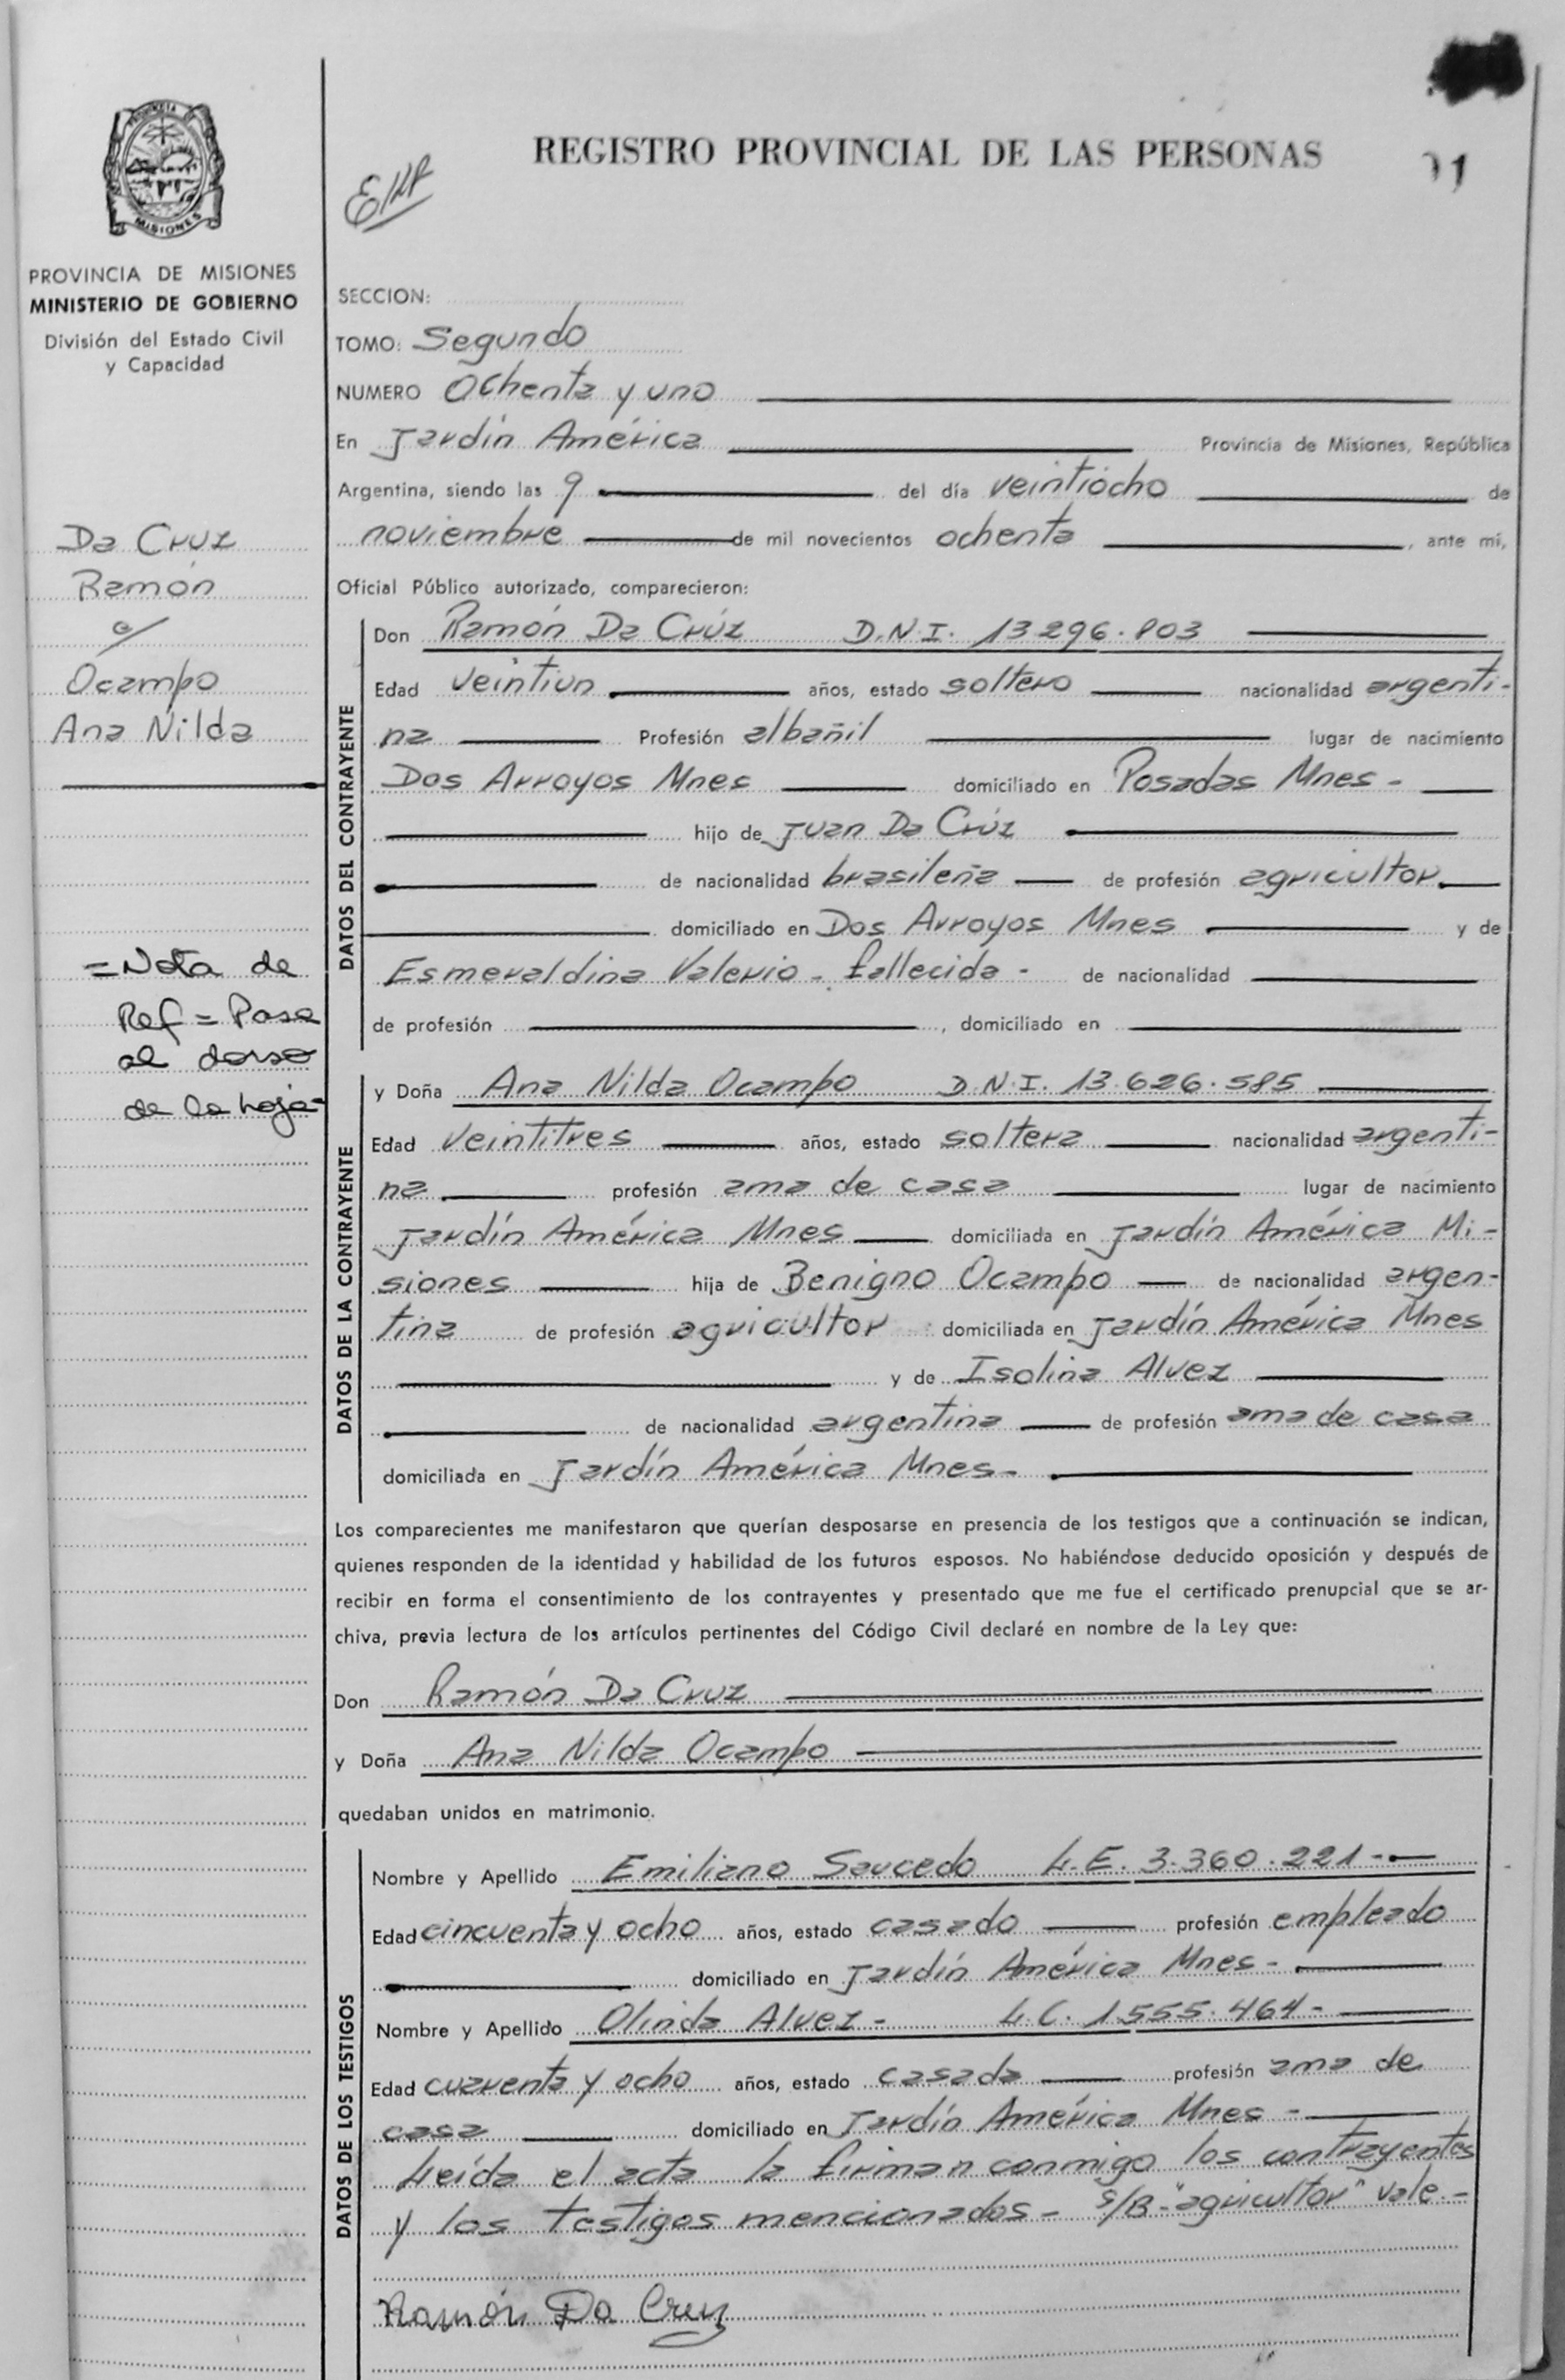 PROVINCIA
MISIONES
PROVINCIA DE MISIONES
MINISTERIO DE GOBIERNO
División del Estado Civil
y Capacidad
Da Cruz
Ramón
c/
Ocampo
Ana Nilda
=Nota de
Ref = Pasa
al dorso
de la hoja-
REGISTRO PROVINCIAL DE LAS PERSONAS
SECCION:
TOMO: Segundo
NUMERO Ochenta y uno
En Jardín América Provincia de Misiones, República
Argentina, siendo las 9 del día veintiocho de
noviembre de mil novecientos ochenta, ante mí,
Oficial Público autorizado, comparecieron:
DATOS DEL CONTRAYENTE
Don Ramón Da Crúz D.N.I. 13.296.803
Edad veintiun años, estado soltero nacionalidad argenti-
na Profesión albañil lugar de nacimiento
Dos Arroyos Mnes domiciliado en Posadas Mnes-
hijo de Juan Da Crúz
de nacionalidad brasileña de profesión agricultor
domiciliado en Dos Arroyos Mnes y de
Esmeraldina Valerio - fallecida - de nacionalidad
de profesión , domiciliado en
DATOS DE LA CONTRAYENTE
y Doña Ana Nilda Ocampo D.N.I. 13.626.585
Edad veintitres años, estado soltera nacionalidad argenti-
na profesión ama de casa lugar de nacimiento
Jardín América Mnes domiciliada en Jardín América Mi-
siones hija de Benigno Ocampo de nacionalidad argen-
tina de profesión agricultor domiciliada en Jardín América Mnes
y de Isolina Alvez
de nacionalidad argentina de profesión ama de casa
domiciliada en Jardín América Mnes-
Los comparecientes me manifestaron que querían desposarse en presencia de los testigos que a continuación se indican,
quienes responden de la identidad y habilidad de los futuros esposos. No habiéndose deducido oposición y después de
recibir en forma el consentimiento de los contrayentes y presentado que me fue el certificado prenupcial que se ar-
chiva, previa lectura de los artículos pertinentes del Código Civil declaré en nombre de la Ley que:
Don Ramón Da Cruz
y Doña Ana Nilda Ocampo
quedaban unidos en matrimonio.
DATOS DE LOS TESTIGOS
Nombre y Apellido Emiliano Saucedo L.E. 3.360.221-
Edad cincuenta y ocho años, estado casado profesión empleado
domiciliado en Jardín América Mnes-
Nombre y Apellido Olinda Alvez- L.C. 1.555.464-
Edad cuarenta y ocho años, estado casada profesión ama de
casa domiciliado en Jardín América Mnes-
Leída el acta la firman conmigo los contrayentes
y los testigos mencionados- S/B-"agricultor" vale.-
Ramón Da Cruz